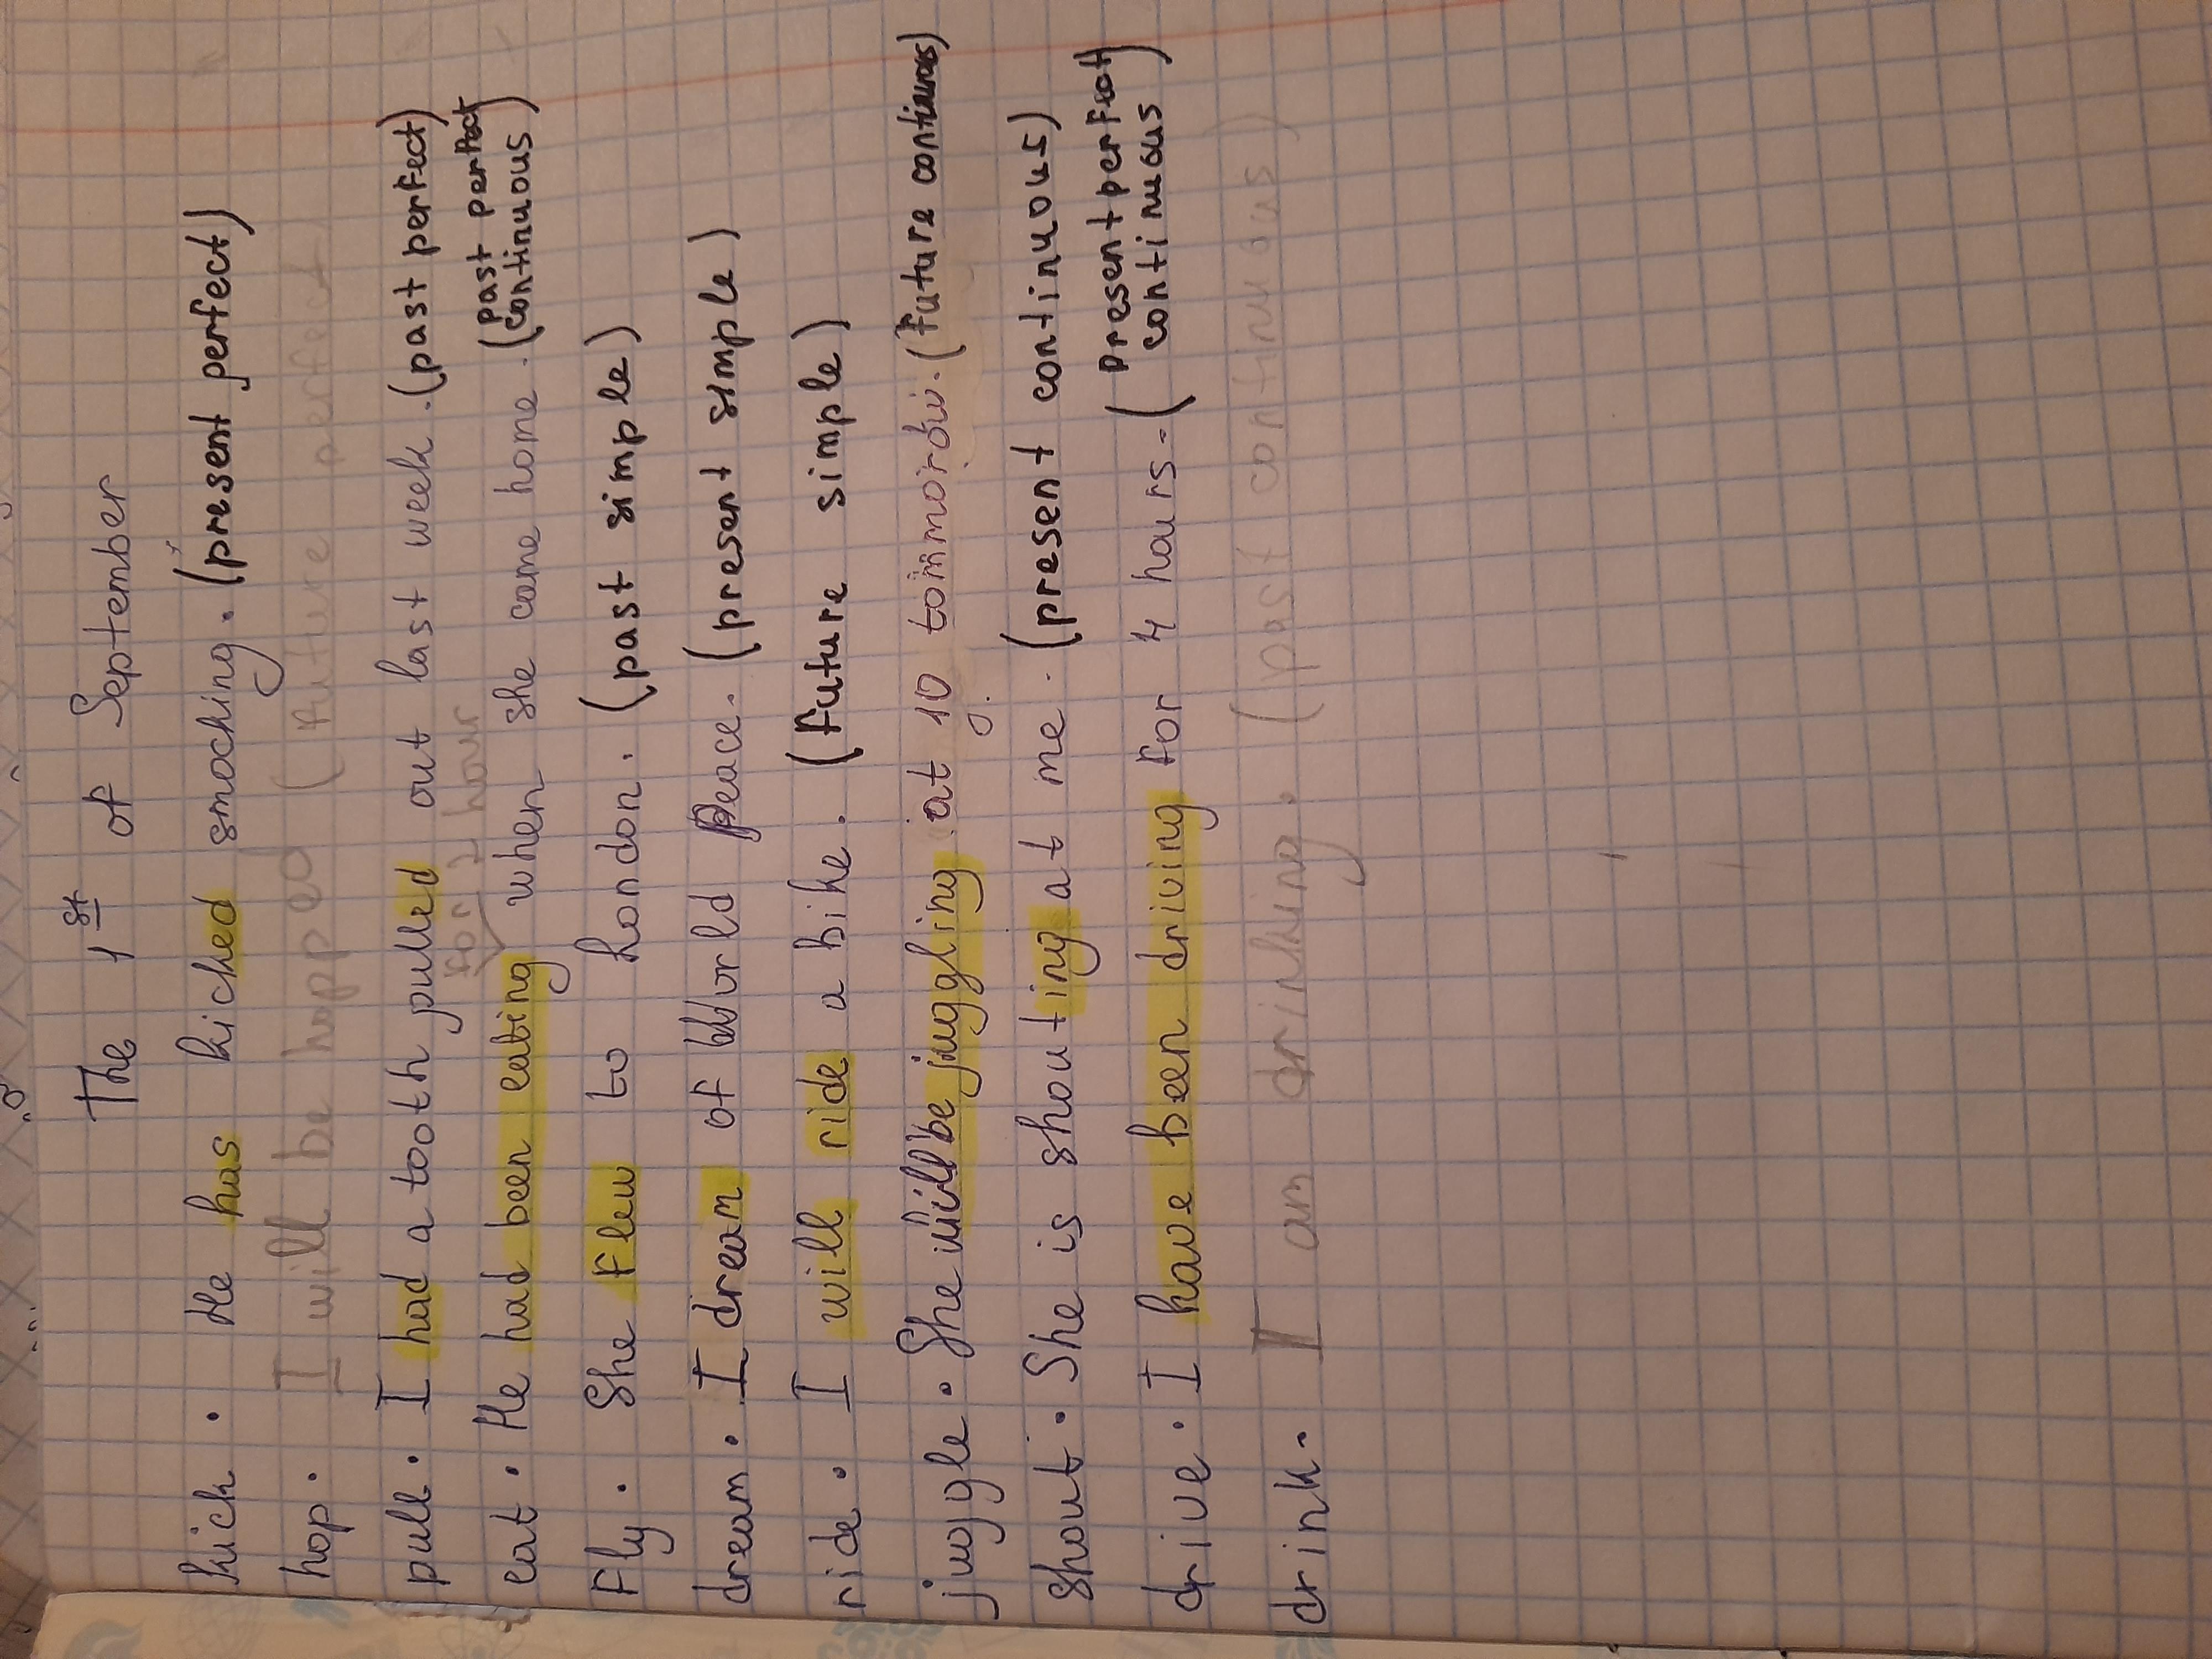 The 1st of September
kick. He has kicked smocking. (present perfect)
hop. I will be hopped (future perfect)
pull. I had a tooth pulled out last week. (past perfect)
for 2 hour
eat. He had been eating when she came home. (past perfect continuous)
Fly. She flew to London. (past simple)
dream. I dream of World peace. (present simple)
ride. I will ride a bike. (future simple)
juggle. She will be juggling at 10 tommorow. (future continuous)
shout. She is shouting at me. (present continuous)
drive. I have been driving for 4 hours. (present perfect continuous)
drink. I am drinking. (past continuous)